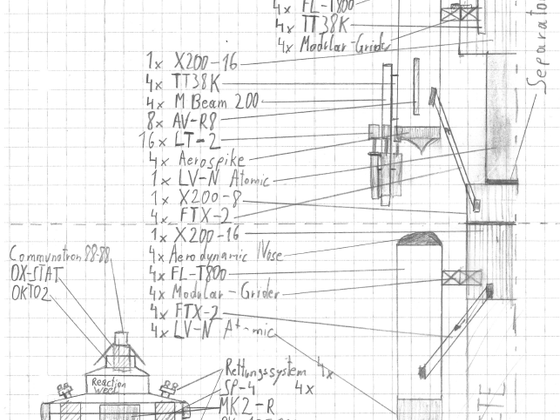 4x FL-T800
4x TT38K
4x Modular-Grider
Separator
1x X200-16
4x TT38K
4x M Beam 200
8x AV-R8
16x LT-2
4x Aerospike
1x LV-N Atomic
1x X200-8
4x FTX-2
1x X200-16
4x Aerodynamic Nose
4x FL-T800
4x Modular-Grider
4x FTX-2
4x LV-N Atomic
4x
Communotron 88-88
OX-STAT
OKTO2
Reaction
Rettungssystem
SP-4 4x
MK2-R